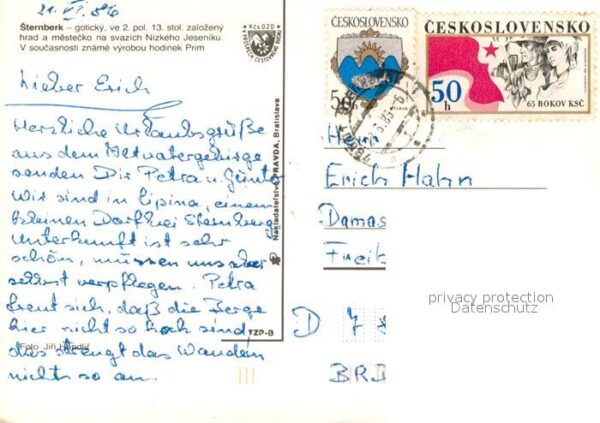 21. VI. 86
Šternberk – gotický, ve 2. pol. 13. stol. založený
hrad a městečko na svazích Nízkého Jeseníku.
V současnosti známé výrobou hodinek Prim
Kčs 0,20
Lieber Erich
Herzliche Urlaubsgrüße
aus dem Altvatergebirge
senden Dir Petra u. Günter
Wir sind in Lipina, einem
kleinen Dorf bei Sternberg
Unterkunft ist sehr
schön, müssen uns aber
selbst verpflegen. Petra
freut sich, daß die Berge
hier nicht so hoch sind
dies strengt das Wandern
nicht so an.
Foto Jiří Handlíř
Nakladatelstvo PRAVDA, Bratislava
TZP-B
ČESKOSLOVENSKO
50h
ČESKOSLOVENSKO
50
h
65 ROKOV KSČ
Herrn
Erich Hahn
Damas
Freib
D 7
BRD
privacy protection
Datenschutz